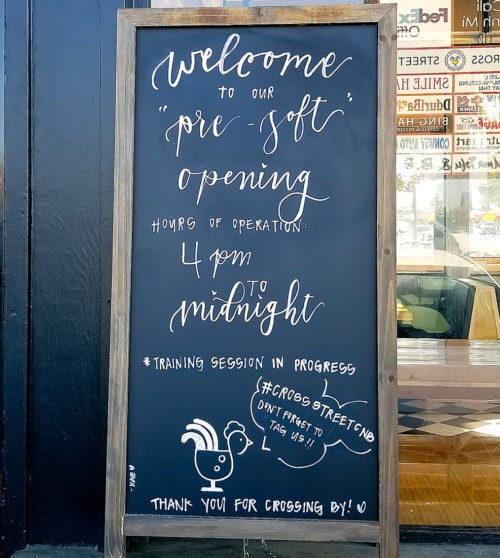 welcome
TO OUR
"pre-soft"
opening
HOURS OF OPERATION:
4 pm
TO
midnight
*TRAINING SESSION IN PROGRESS
#CROSSSTREETCNB
DON'T FORGET TO
TAG US!!
THANK YOU FOR CROSSING BY!
- KAE
FedEx
Office
STREET
SMILE
DduriBa
CONVOY AUTO